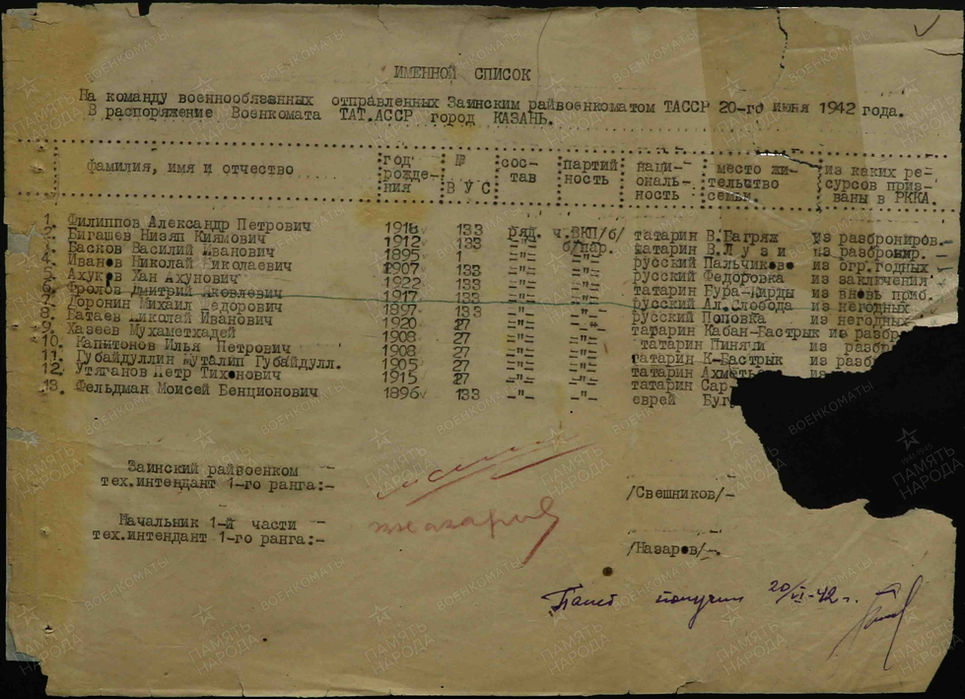 ИМЕННОЙ СПИСОК
На команду военнообязанных отправленных Заинским райвоенкоматом ТАССР 20-го июня 1942 года.
В распоряжение Военкомата ТАТ.АССР город КАЗАНЬ.
фамилия, имя и отчество год рождения № ВУС состав партийность национальность место жительство семьи. из каких ресурсов призваны в РККА.
1. Филиппов Александр Петрович 1918 133 ряд. ч.ВКП/б/ татарин В.Багряж из разброниров.
2. Бигашев Низяп Киямович 1912 133 -"- б/пар. татарин В.Лузи из разбронир.
3. Басков Василий Иванович 1895 1 -"- -"- русский Пальчиково из огр.годных
4. Иванов Николай Николаевич 1907 133 -"- -"- русский Федоровка из заключения
5. Ахунов Хан Ахунович 1922 133 -"- -"- татарин Бура-Кирды из вновь приб.
6. Фролов Дмитрий Яковлевич 1917 133 -"- -"- русский Ал.Слобода из негодных
7. Доронин Михаил Федорович 1897 133 -"- -"- русский Поповка из негодных
8. Батаев Николай Иванович 1920 27 -"- -"- татарин Кабан-Бастрык ис разбр
9. Хазеев Мухаметхадей 1908 27 -"- -"- татарин Пинячи из разбр
10. Капитонов Илья Петрович 1908 27 -"- -"- татарин К-Бастрык из разб
11. Губайдуллин Муталип Губайдулл. 1905 27 -"- -"- татарин Ахметь из
12. Утяганов Петр Тихонович 1915 27 -"- -"- татарин Сар
13. Фельдман Моисей Бенционович 1896 133 -"- -"- еврей Буг
Заинский райвоенком
тех.интендант 1-го ранга:- /Свешников/-
Начальник 1-й части
тех.интендант 1-го ранга:- /Назаров/-.
Назаров
получил 20/VI-42 г.
ПАМЯТЬ НАРОДА
ВОЕНКОМАТЫ